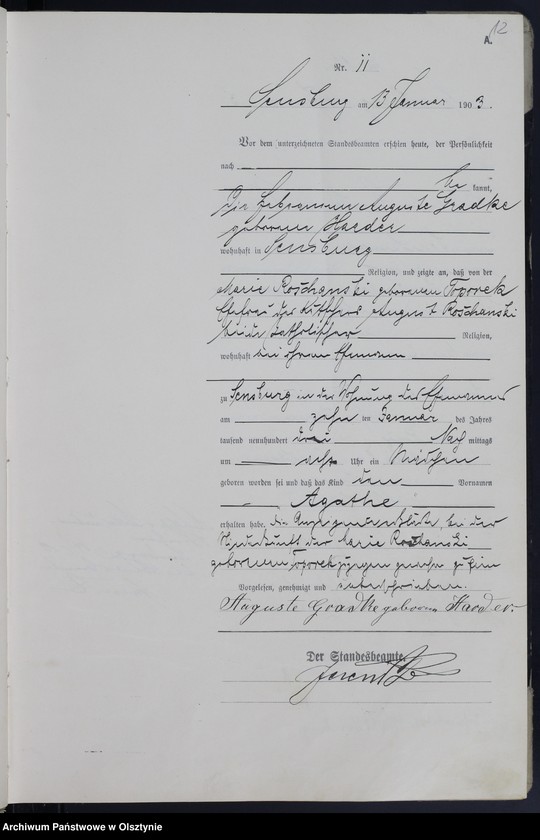 12
A.
Nr. 11
Sensburg am 13 Januar 1903.
Vor dem unterzeichneten Standesbeamten erschien heute, der Persönlichkeit
nach
be kannt,
die Hebamme Auguste Gradtke
geborene Harder
wohnhaft in Sensburg
Religion, und zeigte an, daß von der
Marie Roschanski geborenen Toporek
Ehefrau des Kutschers August Roschanski
beide katholischer Religion,
wohnhaft bei ihrem Ehemann
zu Sensburg in der Wohnung des Ehemannes
am zehn ten Januar des Jahres
tausend neunhundert drei Nach mittags
um acht Uhr ein Mädchen
geboren worden sei und daß das Kind den Vornamen
Agathe
erhalten habe, die Anzeigende bei der
Niederkunft der Marie Roschanski
geborenen Toporek zugegen gewesen zu sein
Vorgelesen, genehmigt und unterschrieben.
Auguste Gradtke geborene Harder
Der Standesbeamte.
Archiwum Państwowe w Olsztynie